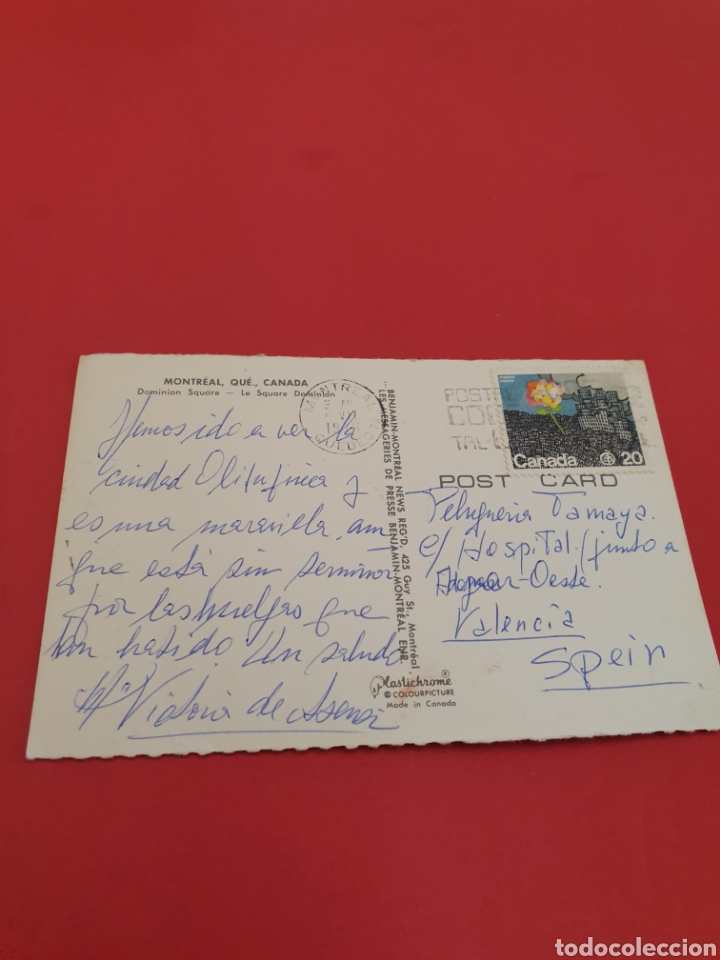 MONTRÉAL, QUÉ., CANADA
Dominion Square — Le Square Dominion
Hemos ido a ver la
ciudad Olimpica y
es una maravilla, aun
que está sin terminar
por las huelgas que
han habido. Un saludo
Mª Victoria de
BENJAMIN-MONTREAL NEWS REG'D, 425 Guy St., Montréal
LES MESSAGERIES DE PRESSE BENJAMIN-MONTREAL ENR.
Plastichrome®
© COLOURPICTURE
Made in Canada
MONTREAL
QUEBEC
POSTAL
CODE
Canada 20
POST CARD
Peluqueria Tamaya.
c/ Hospital/junto a
-Oeste.
Valencia
Spein
todocoleccion